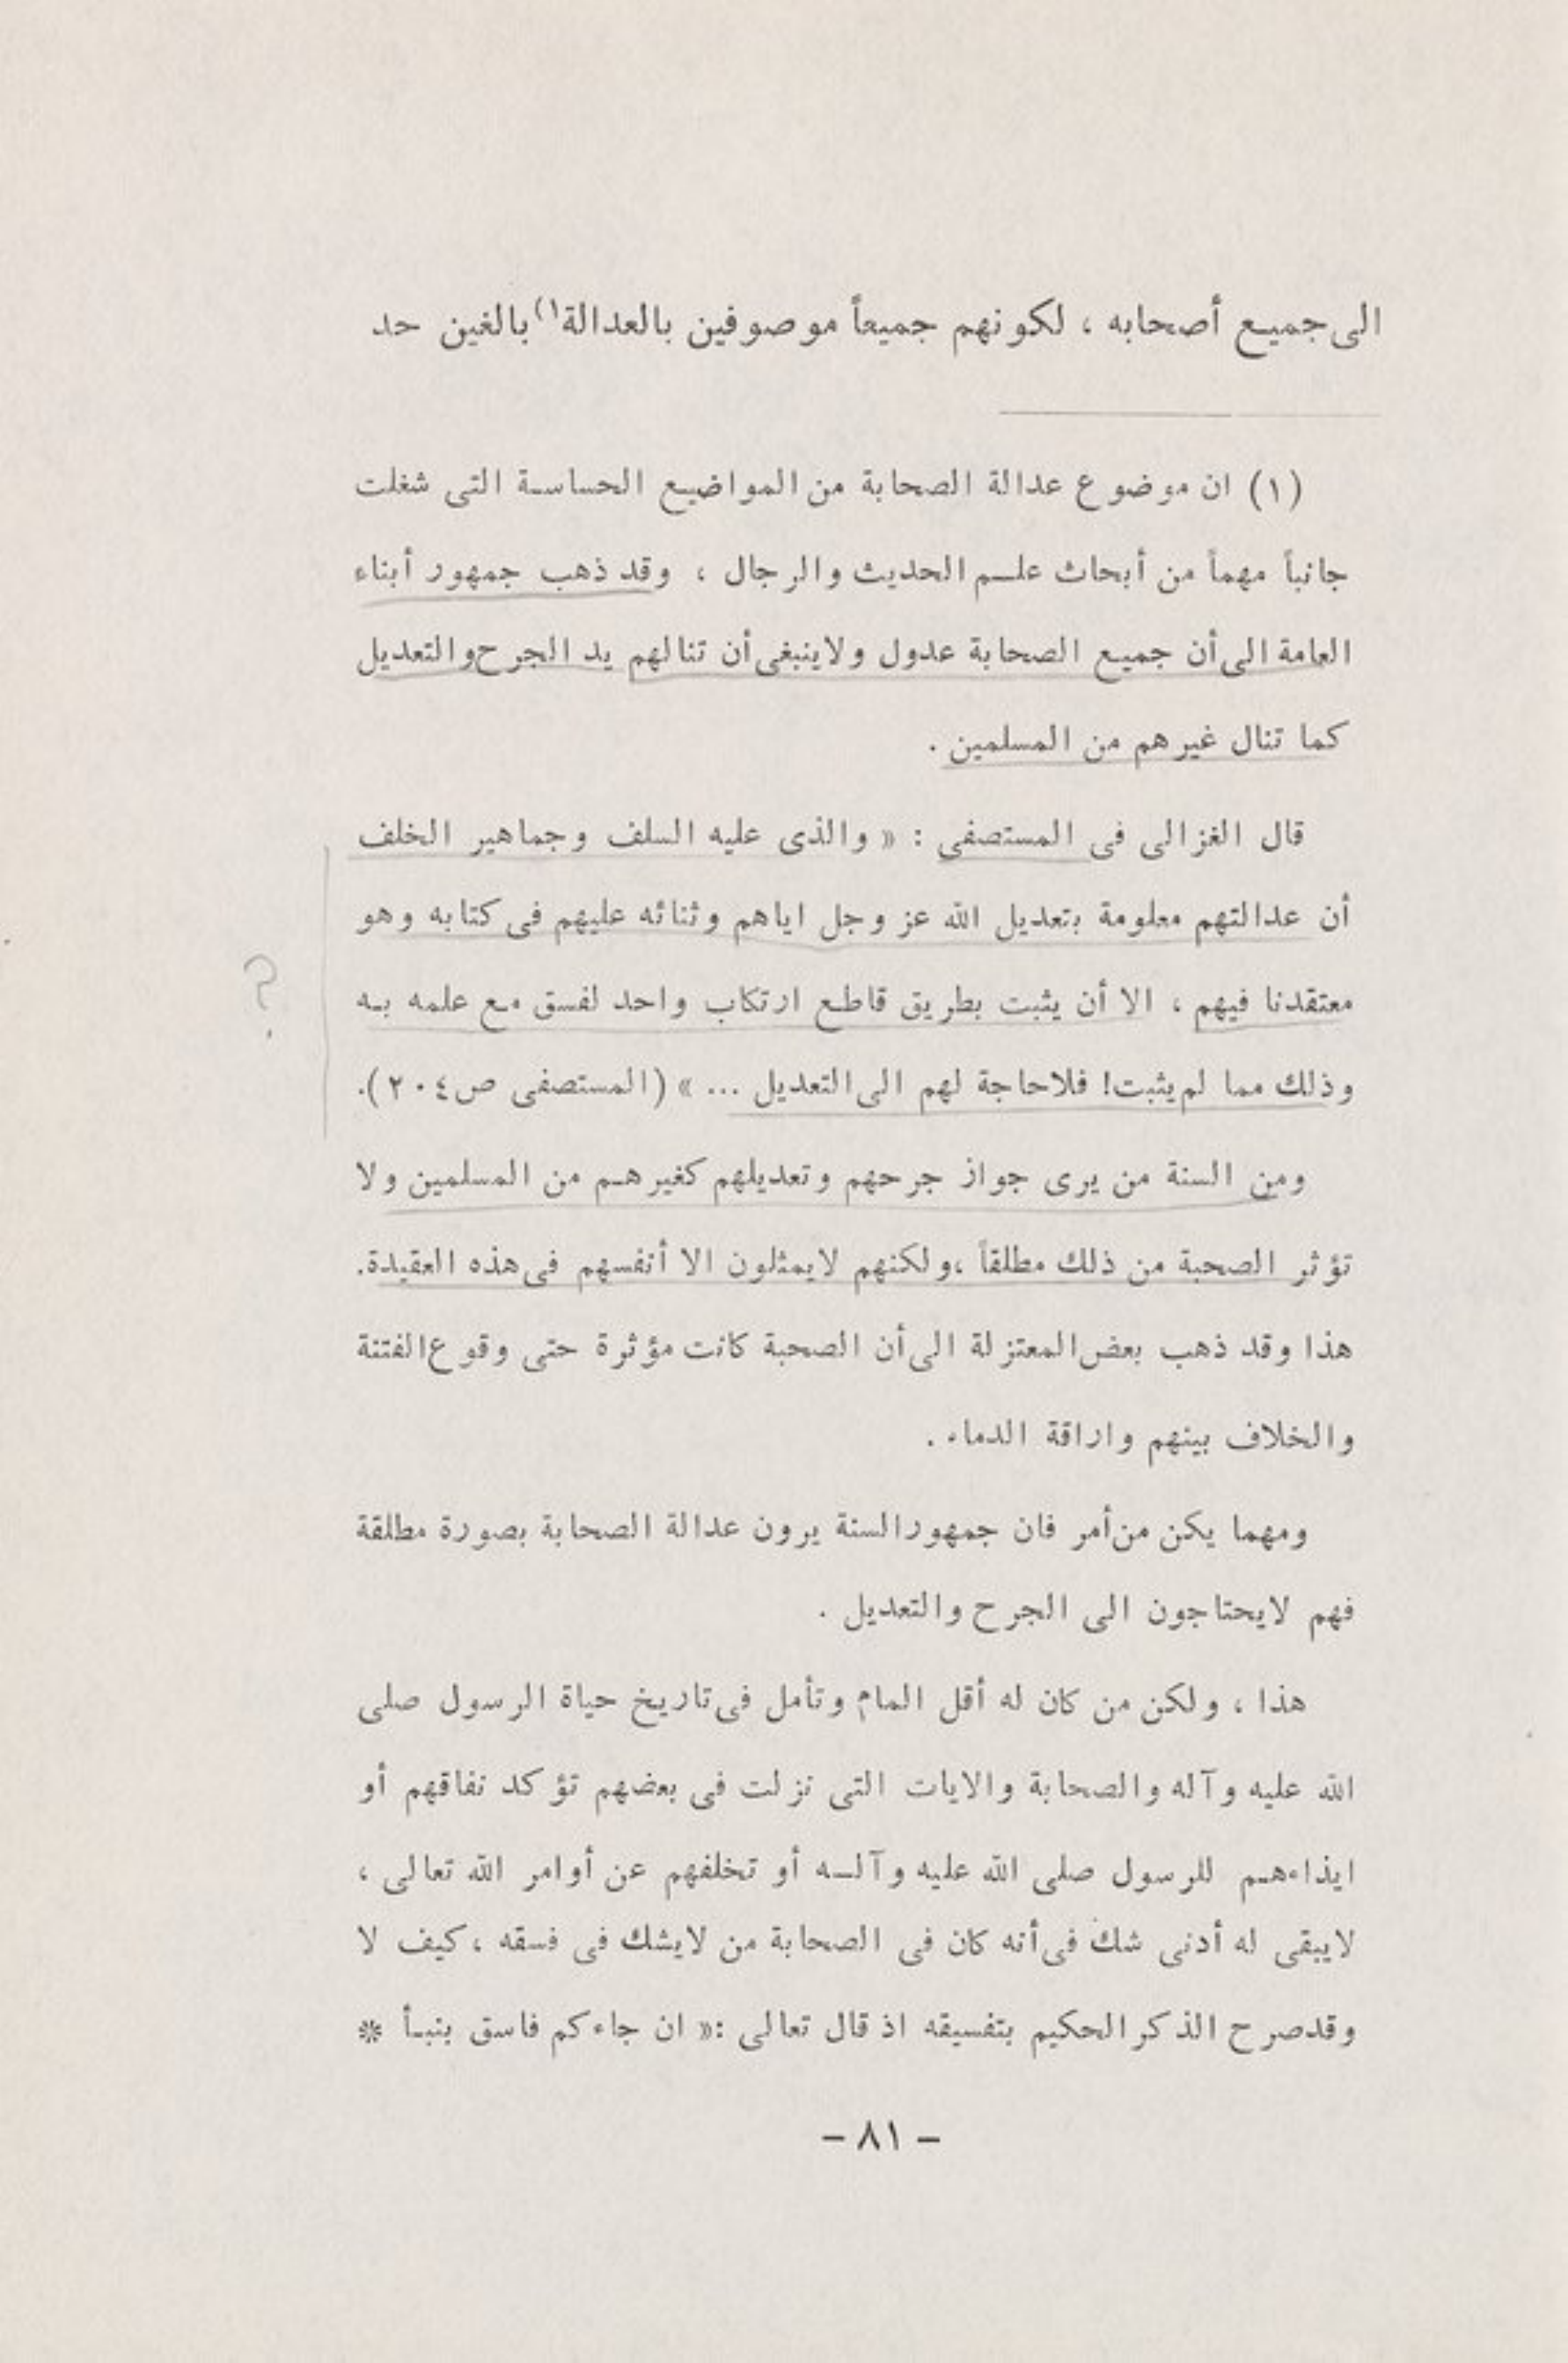 الى جميع أصحابه ، لكونهم جميعاً موصوفين بالعدالة(١) بالغين حد
(١) ان موضوع عدالة الصحابة من المواضيع الحساسة التى شغلت
جانباً مهماً من أبحاث علم الحديث والرجال ، وقد ذهب جمهور أبناء
العامة الى أن جميع الصحابة عدول ولاينبغى أن تنالهم يد الجرح والتعديل
كما تنال غيرهم من المسلمين .
قال الغزالى فى المستصفى : « والذى عليه السلف وجماهير الخلف
أن عدالتهم معلومة بتعديل الله عز وجل اياهم وثنائه عليهم فى كتابه وهو
معتقدنا فيهم ، الا أن يثبت بطريق قاطع ارتكاب واحد لفسق مع علمه به
وذلك مما لم يثبت! فلاحاجة لهم الى التعديل ... » (المستصفى ص٢٠٤).
؟
ومن السنة من يرى جواز جرحهم وتعديلهم كغيرهم من المسلمين ولا
تؤثر الصحبة من ذلك مطلقاً ،ولكنهم لايمثلون الا أنفسهم فى هذه العقيدة.
هذا وقد ذهب بعض المعتزلة الى أن الصحبة كانت مؤثرة حتى وقوع الفتنة
والخلاف بينهم واراقة الدماء .
ومهما يكن من أمر فان جمهور السنة يرون عدالة الصحابة بصورة مطلقة
فهم لايحتاجون الى الجرح والتعديل .
هذا ، ولكن من كان له أقل المام وتأمل فى تاريخ حياة الرسول صلى
الله عليه وآله والصحابة والايات التى نزلت فى بعضهم تؤكد نفاقهم أو
ايذاءهم للرسول صلى الله عليه وآله أو تخلفهم عن أوامر الله تعالى ،
لايبقى له أدنى شك فى أنه كان فى الصحابة من لايشك فى فسقه ، كيف لا
وقدصرح الذكر الحكيم بتفسيقه اذ قال تعالى :« ان جاءكم فاسق بنبأ *
– ٨١ –